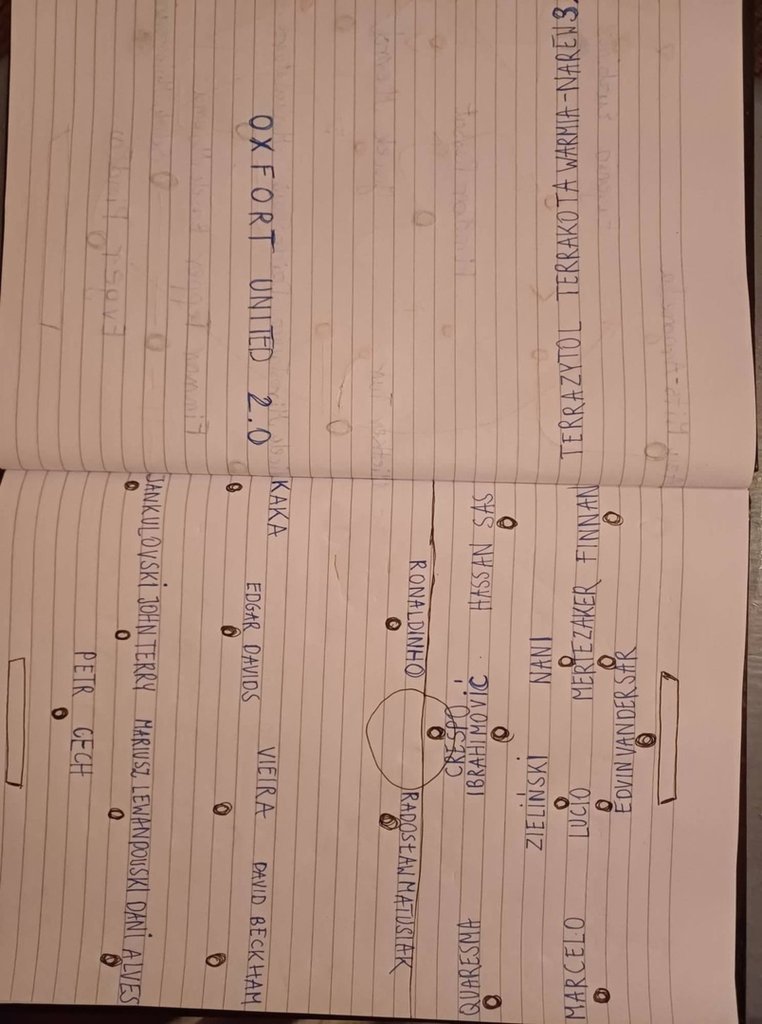 OXFORT UNITED 2.0
RONALDINHO RADOSŁAW MATUSIAK
KAKA EDGAR DAVIDS VIEIRA DAVID BECKHAM
JANKULOVSKI JOHN TERRY MARIUSZ LEWANDOWSKI DANI ALVES
PETR CECH
TERRAZYTOL TERRAKOTA WARMIA-NARENS.
CRESPO
QUARESMA IBRAHIMOVIĆ HASSAN SAS
ZIELIŃSKI NANI
MARCELO LUCIO MERTEZAKER FINNAN
EDVINVANDERSAR